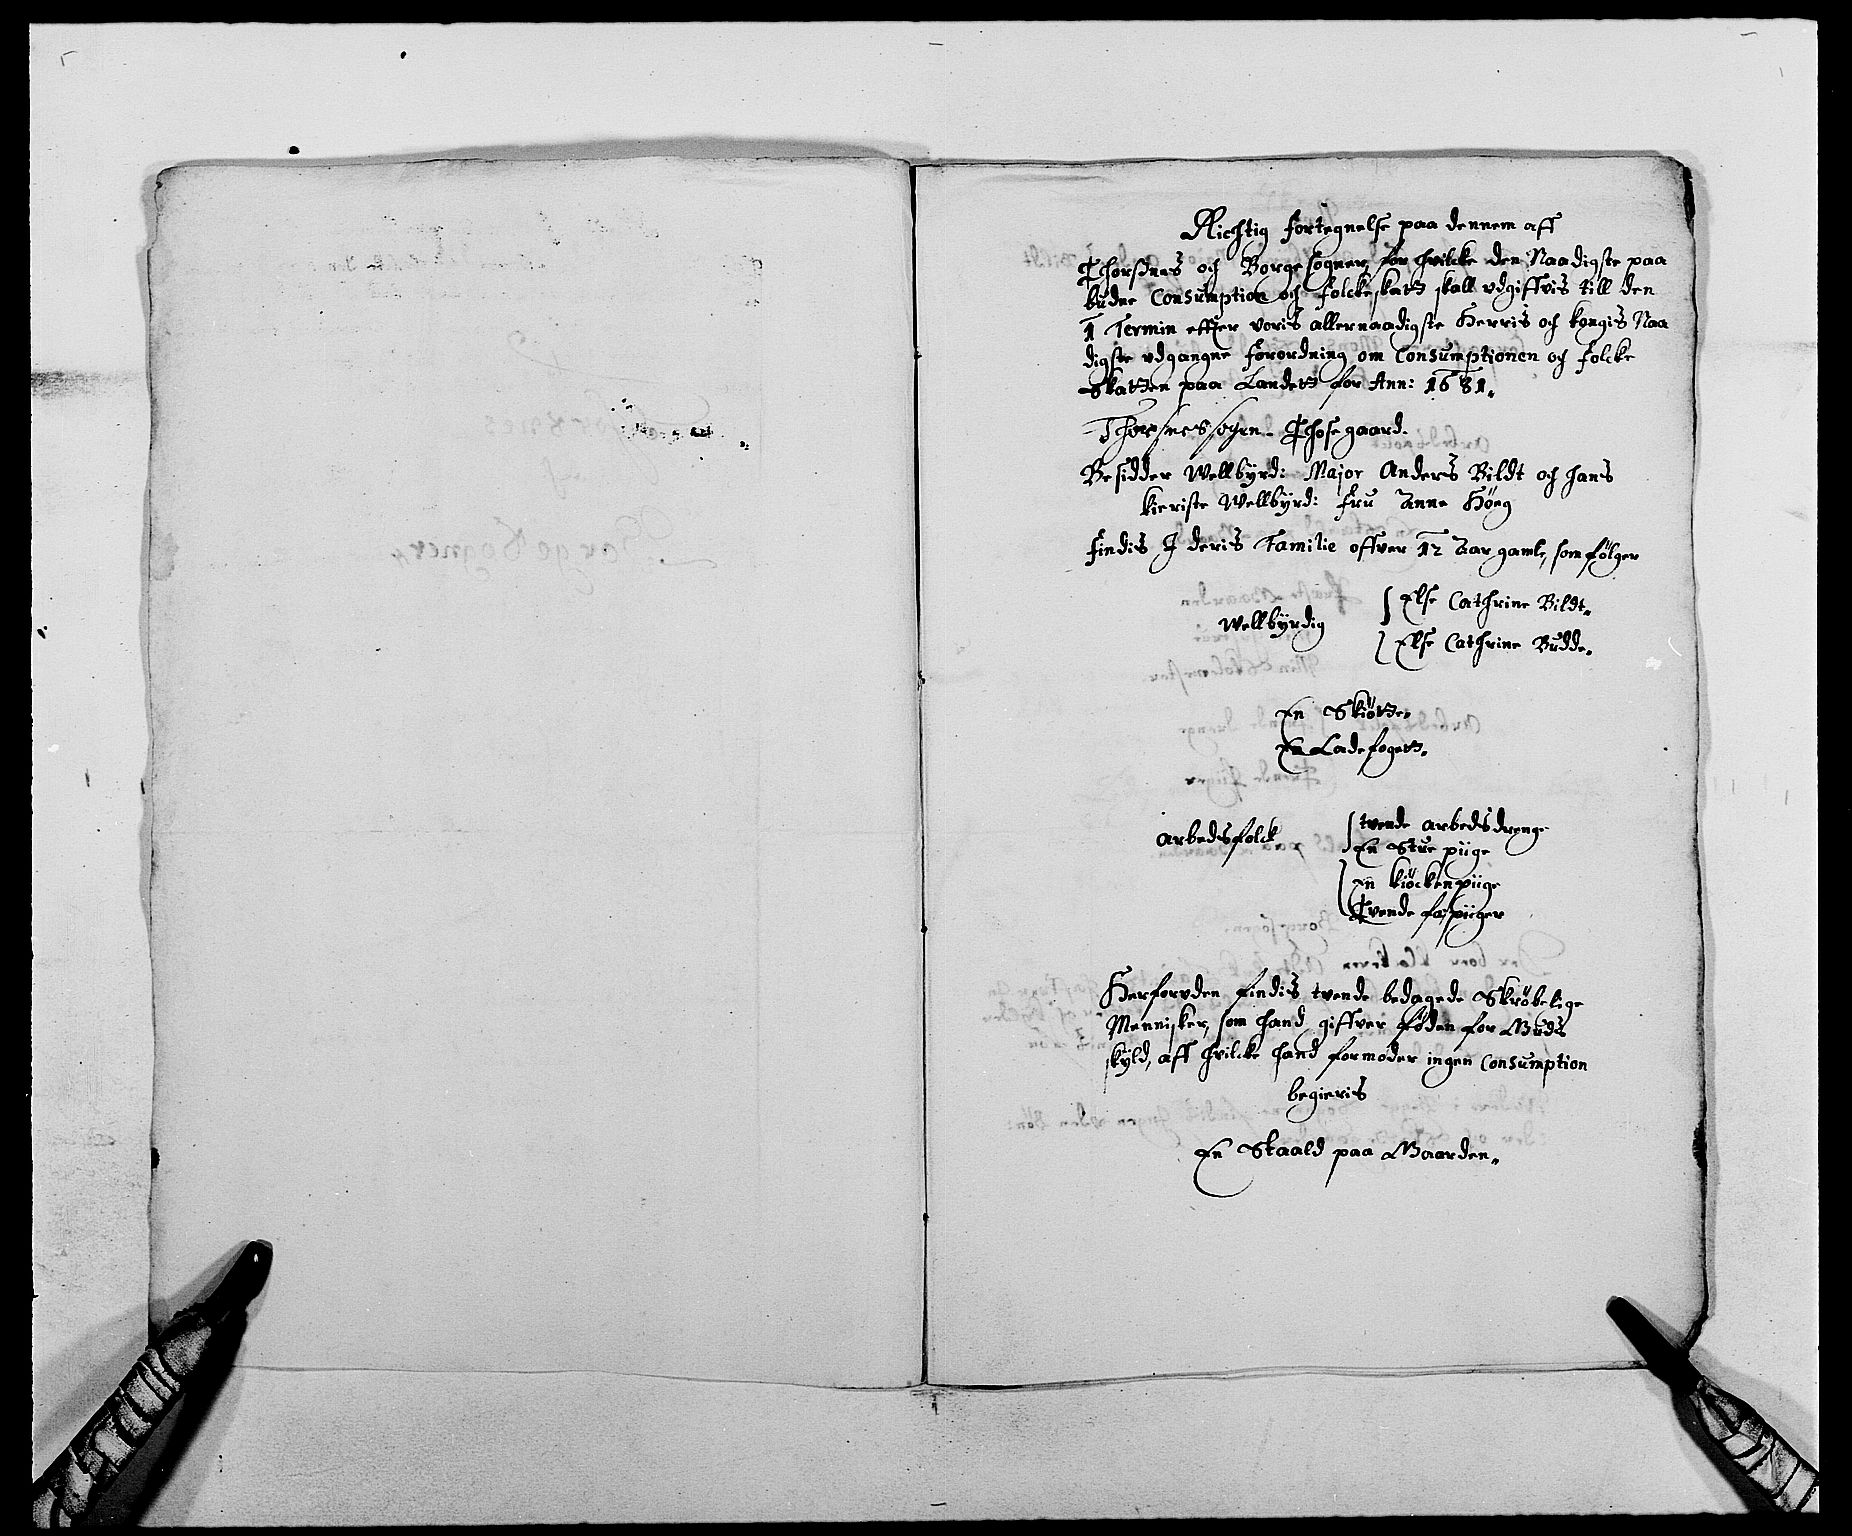 Richtig fortegnelse paa dennem aff
Thorsnes och Borge sogner, for hvilcke den Naadigste paa
budne Consumption och folckeskatt skall udgiffvis till den
1 Termin effter voris allernaadigste Herris och Kongis Naa
digste udgangne forordning om Consumptionen och folcke
Skatten paa Landett for Ann: 1681.
Thorsnes sogen. Thosegaard.
Besidder Wellbyrd: Major Anders Bildt och hans
kieriste Wellbyrd: Fru Anne Høeg
findis I deris Familie offver 12 Aar gamle, som følger
Wellbyrdig
Else Cathrine Bildt.
Else Cathrine Budde.
En Skiøtte.
En Ladefogett.
Arbedsfolck
tvende arbedsdrenge
En Stue piige
En kiøckenpiige
Tvende fæpiiger
Herforuden findis tvende bedagede Skrøbelige
Mennisker, som hand giffver føden for Guds
skyld, aff hvilcke hand formoder ingen Consumption
begieris
En Staald paa Gaarden.